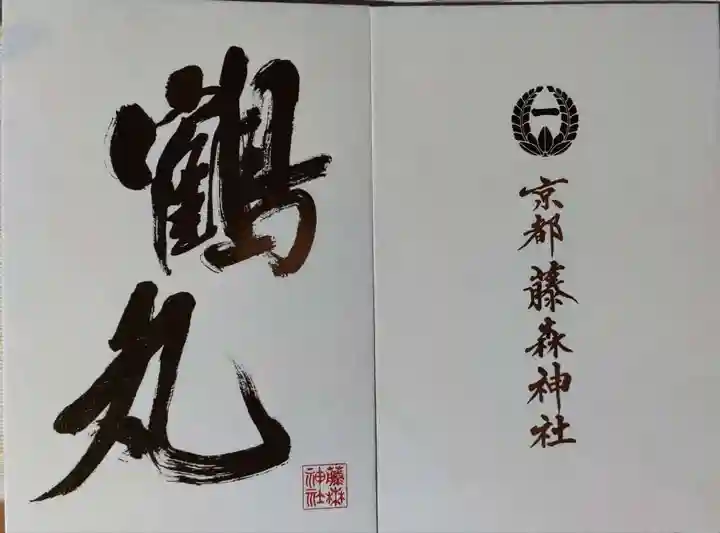 京都 藤森神社
鶴丸
藤森
神社